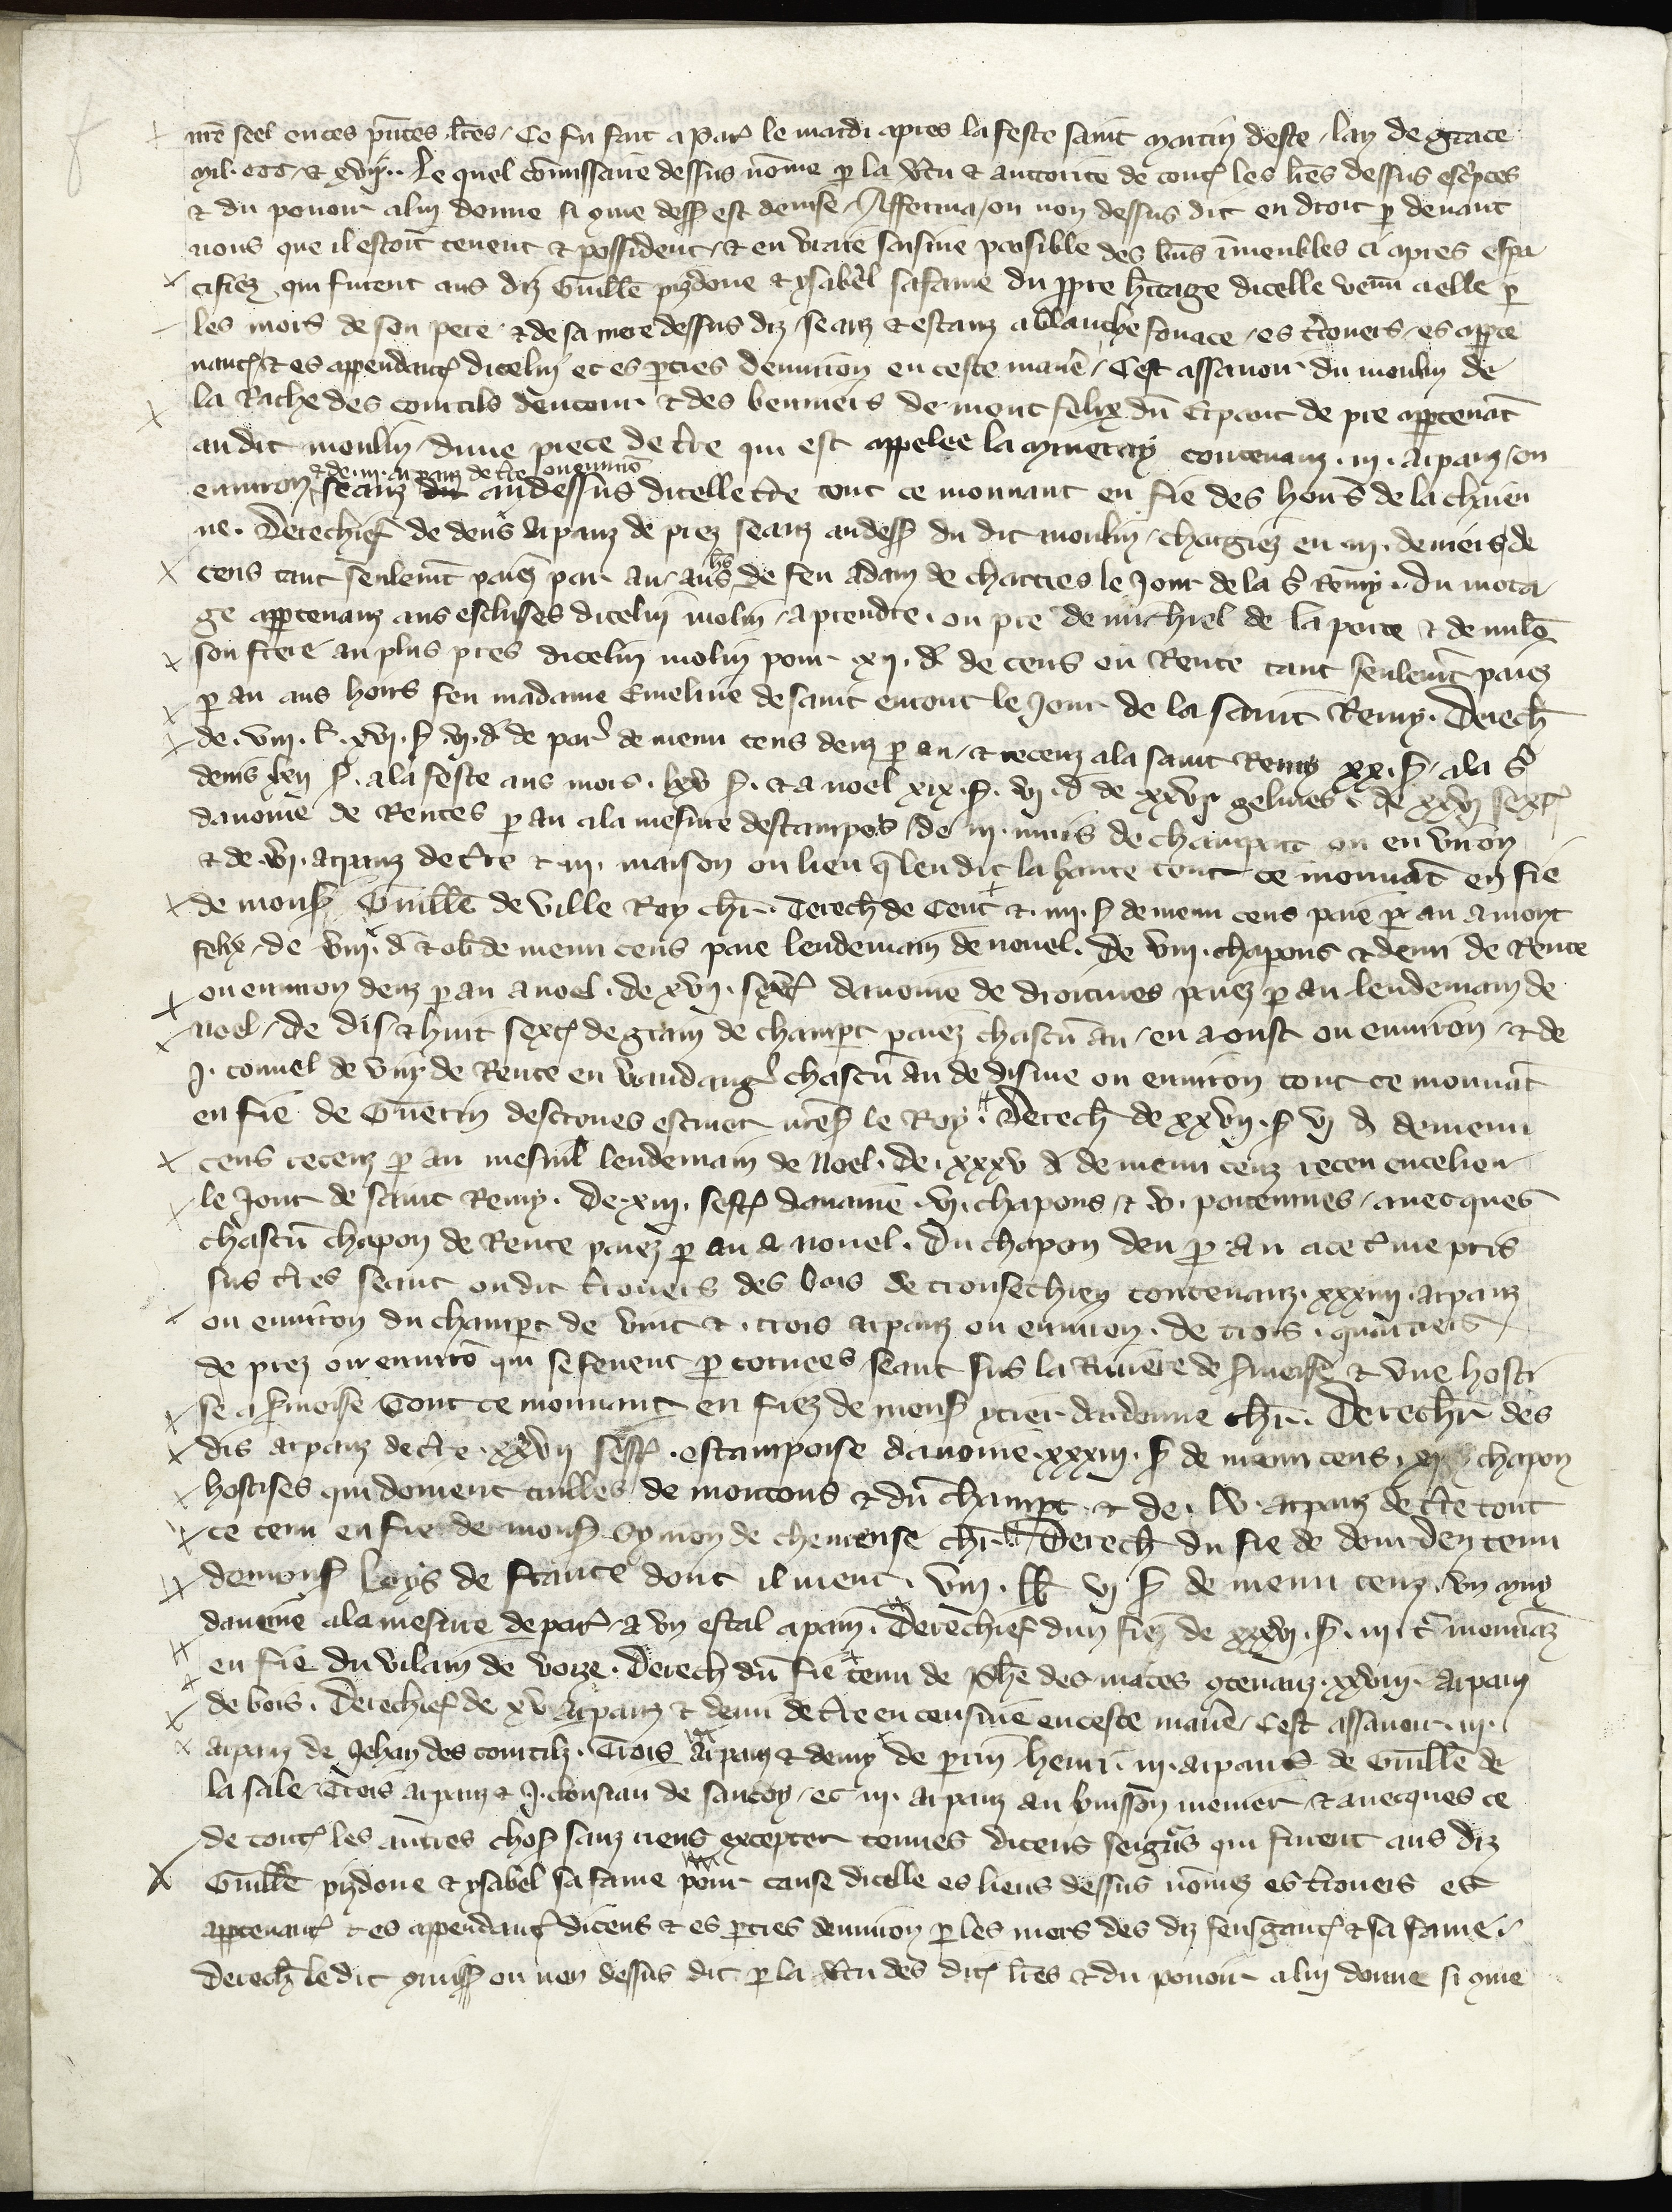 nr̄e seel en ces p̄ntes lr̄es / Ce fu fait a Par̛ le mardi apres la feste saint martin deste / lan de grace
mil . ccc / & xviij .. Le quel cōmissaire dessus nōme p la v̄tu & auctorite de tout̛ les lr̄es dessus esc̛ptes
& du pouoir a luy donne si ɔme dess̛ est deuise / Afferma / ou non dessus dit en droit p deuant
nous que il estoit tenent & possident / & en vraie saisine paisible des bn̄s īmeubles ci apres espe
cifiez qui furent aus diz Guill̄e pizdoue & ysabel sa fame du ppre h̄itage dicelle venu a elle p
les mors de son pere & de sa mere dessus diz / seanz & estanz a blanche fouace / es t̄rouers / es appte
nanc̛ & es appendanc̛ dicelui et es pties denuiron en ceste manē / Cest assauoir du moulin de
la Rache des courtils dentour & des benniers de mont felix dun Arpant de pre apptenāt
audit moulin / dune piece de t̄re qui est appelee la contenanz . iij . arpanz / ou
enuiron & de . iij . arpanz de t̄re ou enuirō seanz au dessus dicelle t̄re tout ce mouuant en fie des hoirs de la chauen
ne . Derechief de deus arpanz de prez seanz au dess̛ du dit moulin / chargiez en . iij . deniers de
cens tant seulemt̄ paiez par an / aus h̄s de feu adam de chartres le Jour de la s̄ Remy . du mota
ge apptenanz aus escluses dicelui molin / a prendre . ou pre de michiel de la porte & de milō
son frere au plus pres dicelui molin pour xij . d̄ de cens ou Rente tant seulemt̄ paiez
p an aus hoirs feu madame Emeline de saint le Jour de la saint Remy . Derech̄
de . viij . l̄ . xvj . s̛ . vj . d̄ de par̛ de menu cens deuz p an / & receuz a la saint Remy xx . s̛ / a la s̄
denis lxij s̛ . a la feste aus mors . lxv s̛ . & a noel xix . s̛ . vj . d̄ de xxvj gelines & de xxvj sext̛
dauoine de Rentes p an a la mesure destampes / de iij . muis de champart ou en viron
& de . vj . arpanz de t̄re & . iij . maison ou lieu q̄ len dit la hante tout ce mouuāt en fie
de mons̛ Guill̄e de ville Roy ch̄r . Derech̄ de Cent & . iiij . s̛ de menu cens paie p an a mont
felix / de viij . d̄ & ob̄ de menu cens paie lendemain de nouel . De viij . chapons & demi de Rente
ou enuiron deuz p an a noel . de xvij . sext̛ dauoine de droitures paiez p an lendemain de
noel / de dis & huit sext̛ de grain de champt paiez chascū an / en aoust ou enuiron / & de
j . tonnel de vin de Rente en v̄andang̛ chascū an de disme ou enuiron tout ce mouuāt
en fie de Guerin desctoues escuier nr̄es̛ le Roy . Derech̄ de xxvij . s̛ vj d̄ de menu
cens receuz p an mesnil lendemain de Noel . de . xxxv d̄ de menu cenz receu en ce lieu
le Jour de saint Remy . De . xiij . sest̛ dauaine . vj . chapons / & . v . poitenines / auecques
chascū chapon de Rente paiez p an a nouel . Du chapon deu p an a ce t̄me pris
sus t̄res seant ou dit t̄rouers des bois de trousechien contenanz . xxxiiij . arpanz
ou enuiron du champt de vint & . trois arpanz ou enuiron . de trois . quartiers
de prez ou enuirō qui se fenent p coruees / seant sus la Riuiere de s̛inoise & vne hosti
se a s̛inoise Tout ce mouuant en fiez de mons̛ ytier dardenne ch̄r . Derech̄r des
dis arpanz de t̄re . xxvij sest̛ . estampoise dauoine . xxxiij . s̛ de menu cens . chapon
hostises qui doiuent tailles de moutons & du champt & de . lv . arpanz de t̄re tout
ce tenu en fie de mons̛ Symon de cheneuse ch̄r . Derech̄ du fie de dourden tenu
de mons̛ loys de france dont il uient . viij . ll̄ vj s̛ de menu cenz . vn muy
dauoine a la mesure de par̛ & vn estal a pain . Derechief dun fiez de xxxvj . s̛ . iij . t̛ mouuāz
en fie du vilain de voize . Derech̄ dū fie tenu de Ph̄e des mares ɔtenanz . xxviij . arpanz
de bois . Derechief de xv arpanz & demi de t̄re en censiue en ceste manē / Cest assauoir . iij .
arpanz de Jehan des courtilz . Trois arpanz & demy de prin henri . iij . arpans de Guill̄e de
la sale . Trois arpanz & j . clousiau de santoy / et iij . arpanz au buisson menier / & auecques ce
de tout̛ les autres chos̛ sanz riens excepter tenues diceus seigrs̄ qui furent aus diz
Guill̄e pizdoue & ysabel sa fame pour cause dicelle es lieus dessus nōmez es t̄rouers es
apptenanc̛ & es appendanc̛ diceus & es pties denuiron p les mors des diz sensganc̛ & sa fame .
Derech̄ le dit ɔmiss̛ ou non dessus dit p la v̄tu des dit̛ lr̄es & du pouoir a luy donne si ɔme